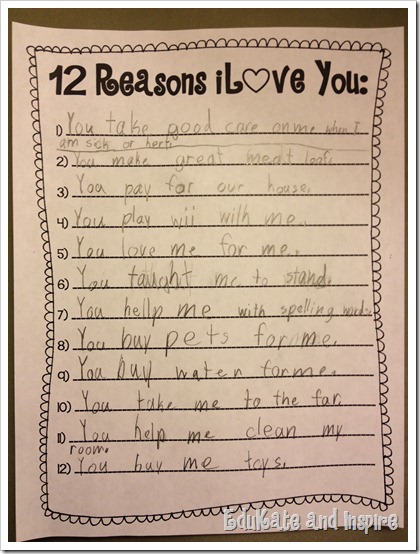 12 Reasons i L♡ve You:
1) You take good care onme when I
am sick or hert.
2) You make great meat loaf.
3) You pay for our house.
4) You play wii with me.
5) You love me for me.
6) You taught me to stand.
7) You hellp me with spelling words.
8) You buy pets for me.
9) You buy water for me.
10) You take me to the far.
11) You help me clean my
room.
12) You buy me toys.
EduKate and Inspire